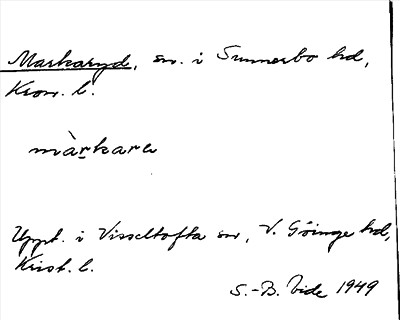 Markaryd, sn. i Sunnerbo hd,
Kron. l.
màrkara
Uppt. i Visseltofta sn, V. Göinge hd,
Krist. l.
S.-B. Vide 1949